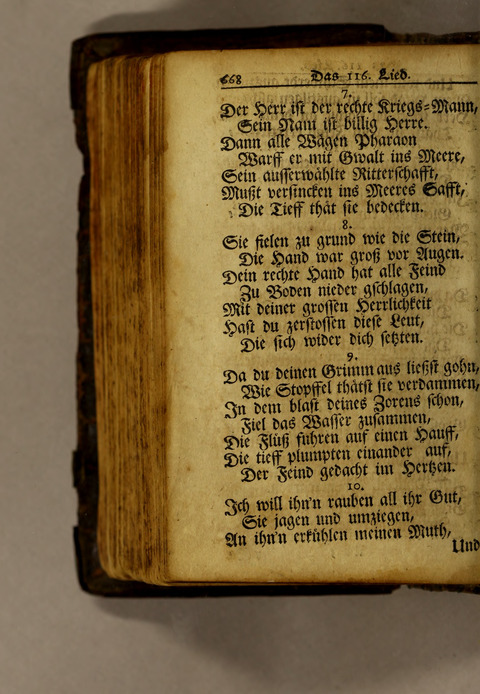 668 Das 116. Lied.
7.
Der Herr ist der rechte Kriegs=Mann,
Sein Nam ist billig Herre.
Dann alle Wägen Pharaon
Warff er mit Gwalt ins Meere,
Sein ausserwählte Ritterschafft,
Mußt versincken ins Meeres Safft,
Die Tieff thät sie bedecken.
8.
Sie fielen zu grund wie die Stein,
Die Hand war groß vor Augen.
Dein rechte Hand hat alle Feind
Zu Boden nieder gschlagen,
Mit deiner grossen Herrlichkeit
Hast du zerstossen diese Leut,
Die sich wider dich setzten.
9.
Da du deinen Grimm aus ließst gohn,
Wie Stopffel thätst sie verdammen,
In dem blast deines Zorens schon,
Fiel das Wasser zusammen,
Die Flüß fuhren auf einen Hauff,
Die tieff plumpten einander auf,
Der Feind gedacht im Hertzen.
10.
Ich will ihn'n rauben all ihr Gut,
Sie jagen und umziegen,
An ihn'n erkühlen meinen Muth,
Und